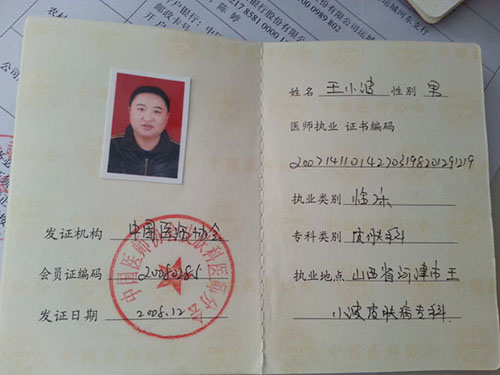 发证机构 中国医师协会
会员证编码 20080285
发证日期 2008.12
中国医师协会皮肤科医师分会
姓名 王小波 性别 男
医师执业 证书编码
执业类别 临床
专科类别 皮肤科
执业地点 山西省河津市王
小波皮肤病专科